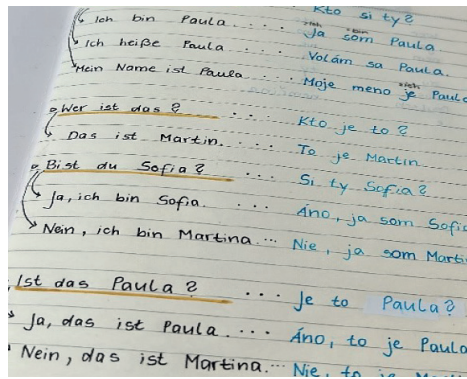 Kto si ty?
Ich bin Paula.... Ja som Paula.
Ich heiße Paula.... Volám sa Paula.
Mein Name ist Paula.... Moje meno je Paula
Wer ist das?... Kto je to?
Das ist Martin.... To je Martin
Bist du Sofia?... Si ty Sofia?
Ja, ich bin Sofia.... Áno, ja som Sofia
Nein, ich bin Martina... Nie, ja som Marti
Ist das Paula?... Je to Paula?
Ja, das ist Paula.... Áno, to je Paula
Nein, das ist Martina... Nie, to je